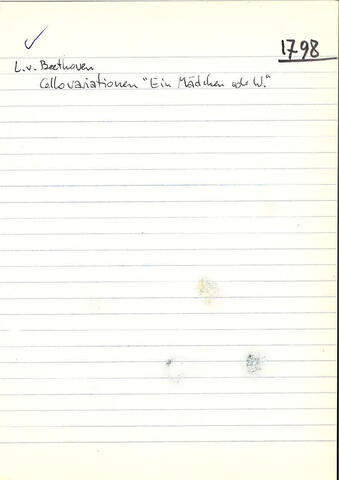 1798
L.v. Beethoven
Cellovariationen "Ein Mädchen ode W."